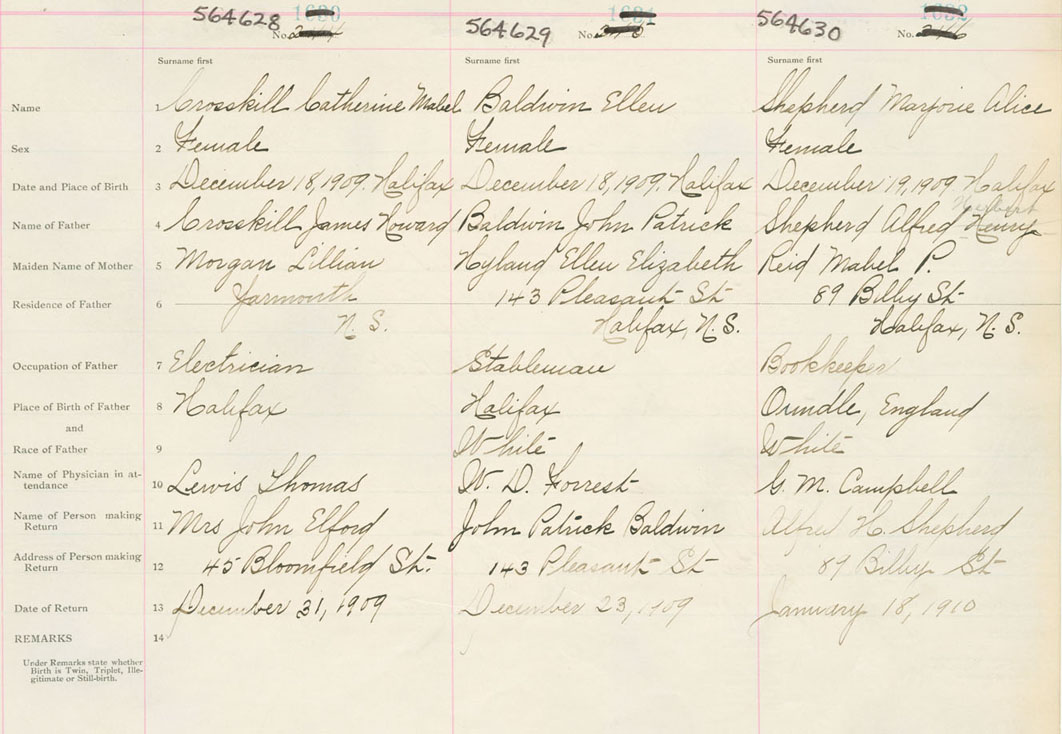 564628 1630 564629 1631 564630 1632
No. No. No.
Surname first Surname first Surname first
Name 1 Crosskill Catherine Mabel Baldwin Ellen Shepherd Marjorie Alice
Sex 2 Female Female Female
Date and Place of Birth 3 December 18, 1909. Halifax December 18, 1909. Halifax December 19, 1909 Halifax
Herbert
Name of Father 4 Crosskill James Howard Baldwin John Patrick Shepherd Alfred Henry
Maiden Name of Mother 5 Morgan Lillian Hyland Ellen Elizabeth Reid Mabel P.
Residence of Father 6 Yarmouth 143 Pleasant St 89 Bilby St
N.S. Halifax, N.S. Halifax, N.S.
Occupation of Father 7 Electrician Stableman Bookkeeper
Place of Birth of Father 8 Halifax Halifax Oundle, England
and
Race of Father 9 White White
Name of Physician in at-
tendance 10 Lewis Thomas W. D. Forrest G. M. Campbell
Name of Person making
Return 11 Mrs John Elford John Patrick Baldwin Alfred H. Shepherd
Address of Person making
Return 12 45 Bloomfield St. 143 Pleasant St 89 Bilby St
Date of Return 13 December 31, 1909 December 23, 1909 January 18, 1910
REMARKS 14
Under Remarks state whether
Birth is Twin, Triplet, Ille-
gitimate or Still-birth.